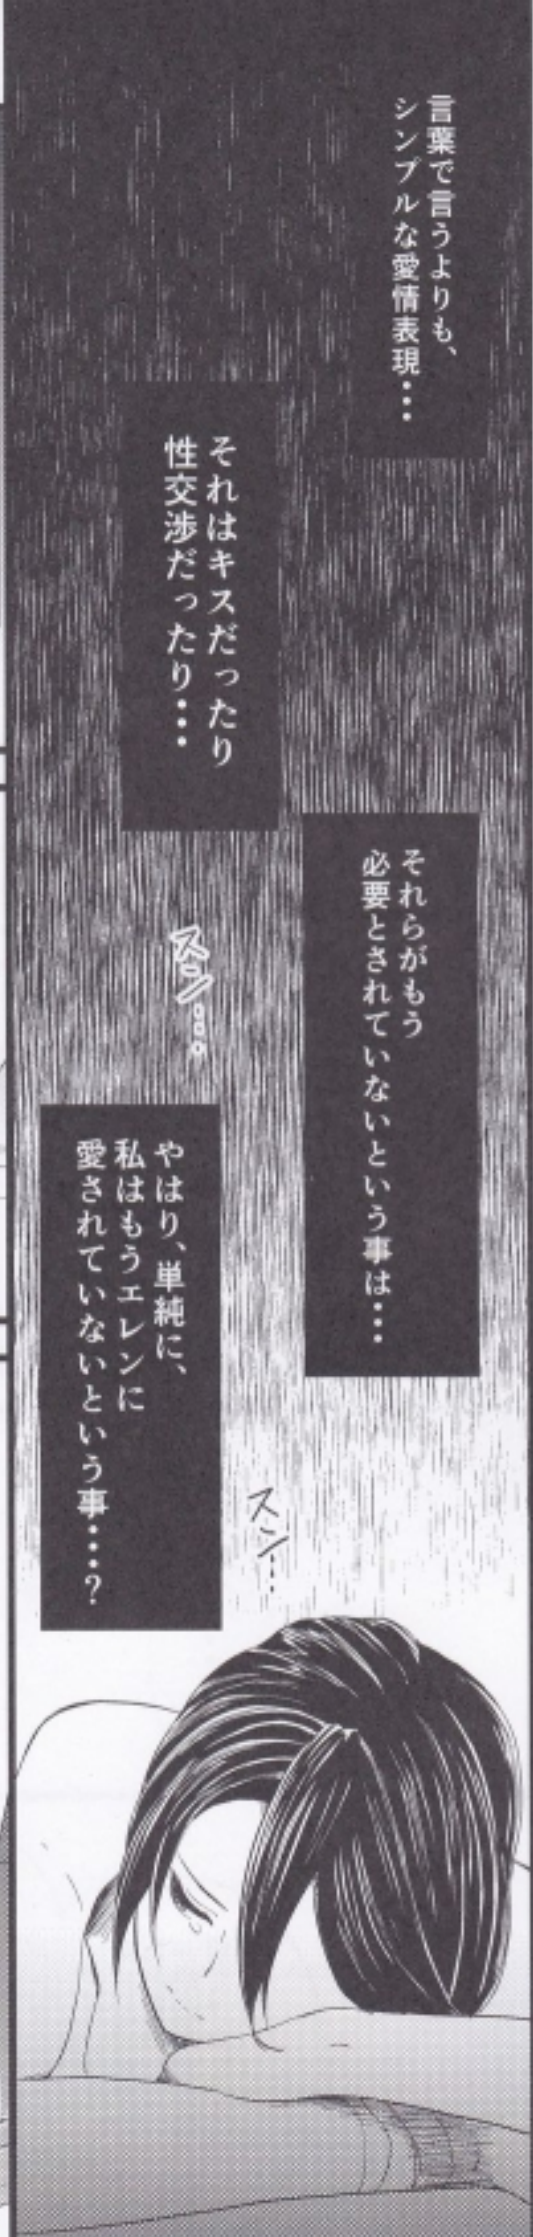 言葉で言うよりも、
シンプルな愛情表現・・・
それはキスだったり
性交渉だったり・・・
それらがもう
必要とされていないという事は・・・
スン・・・
やはり、単純に、
私はもうエレンに
愛されていないという事・・・・?
スン・・・